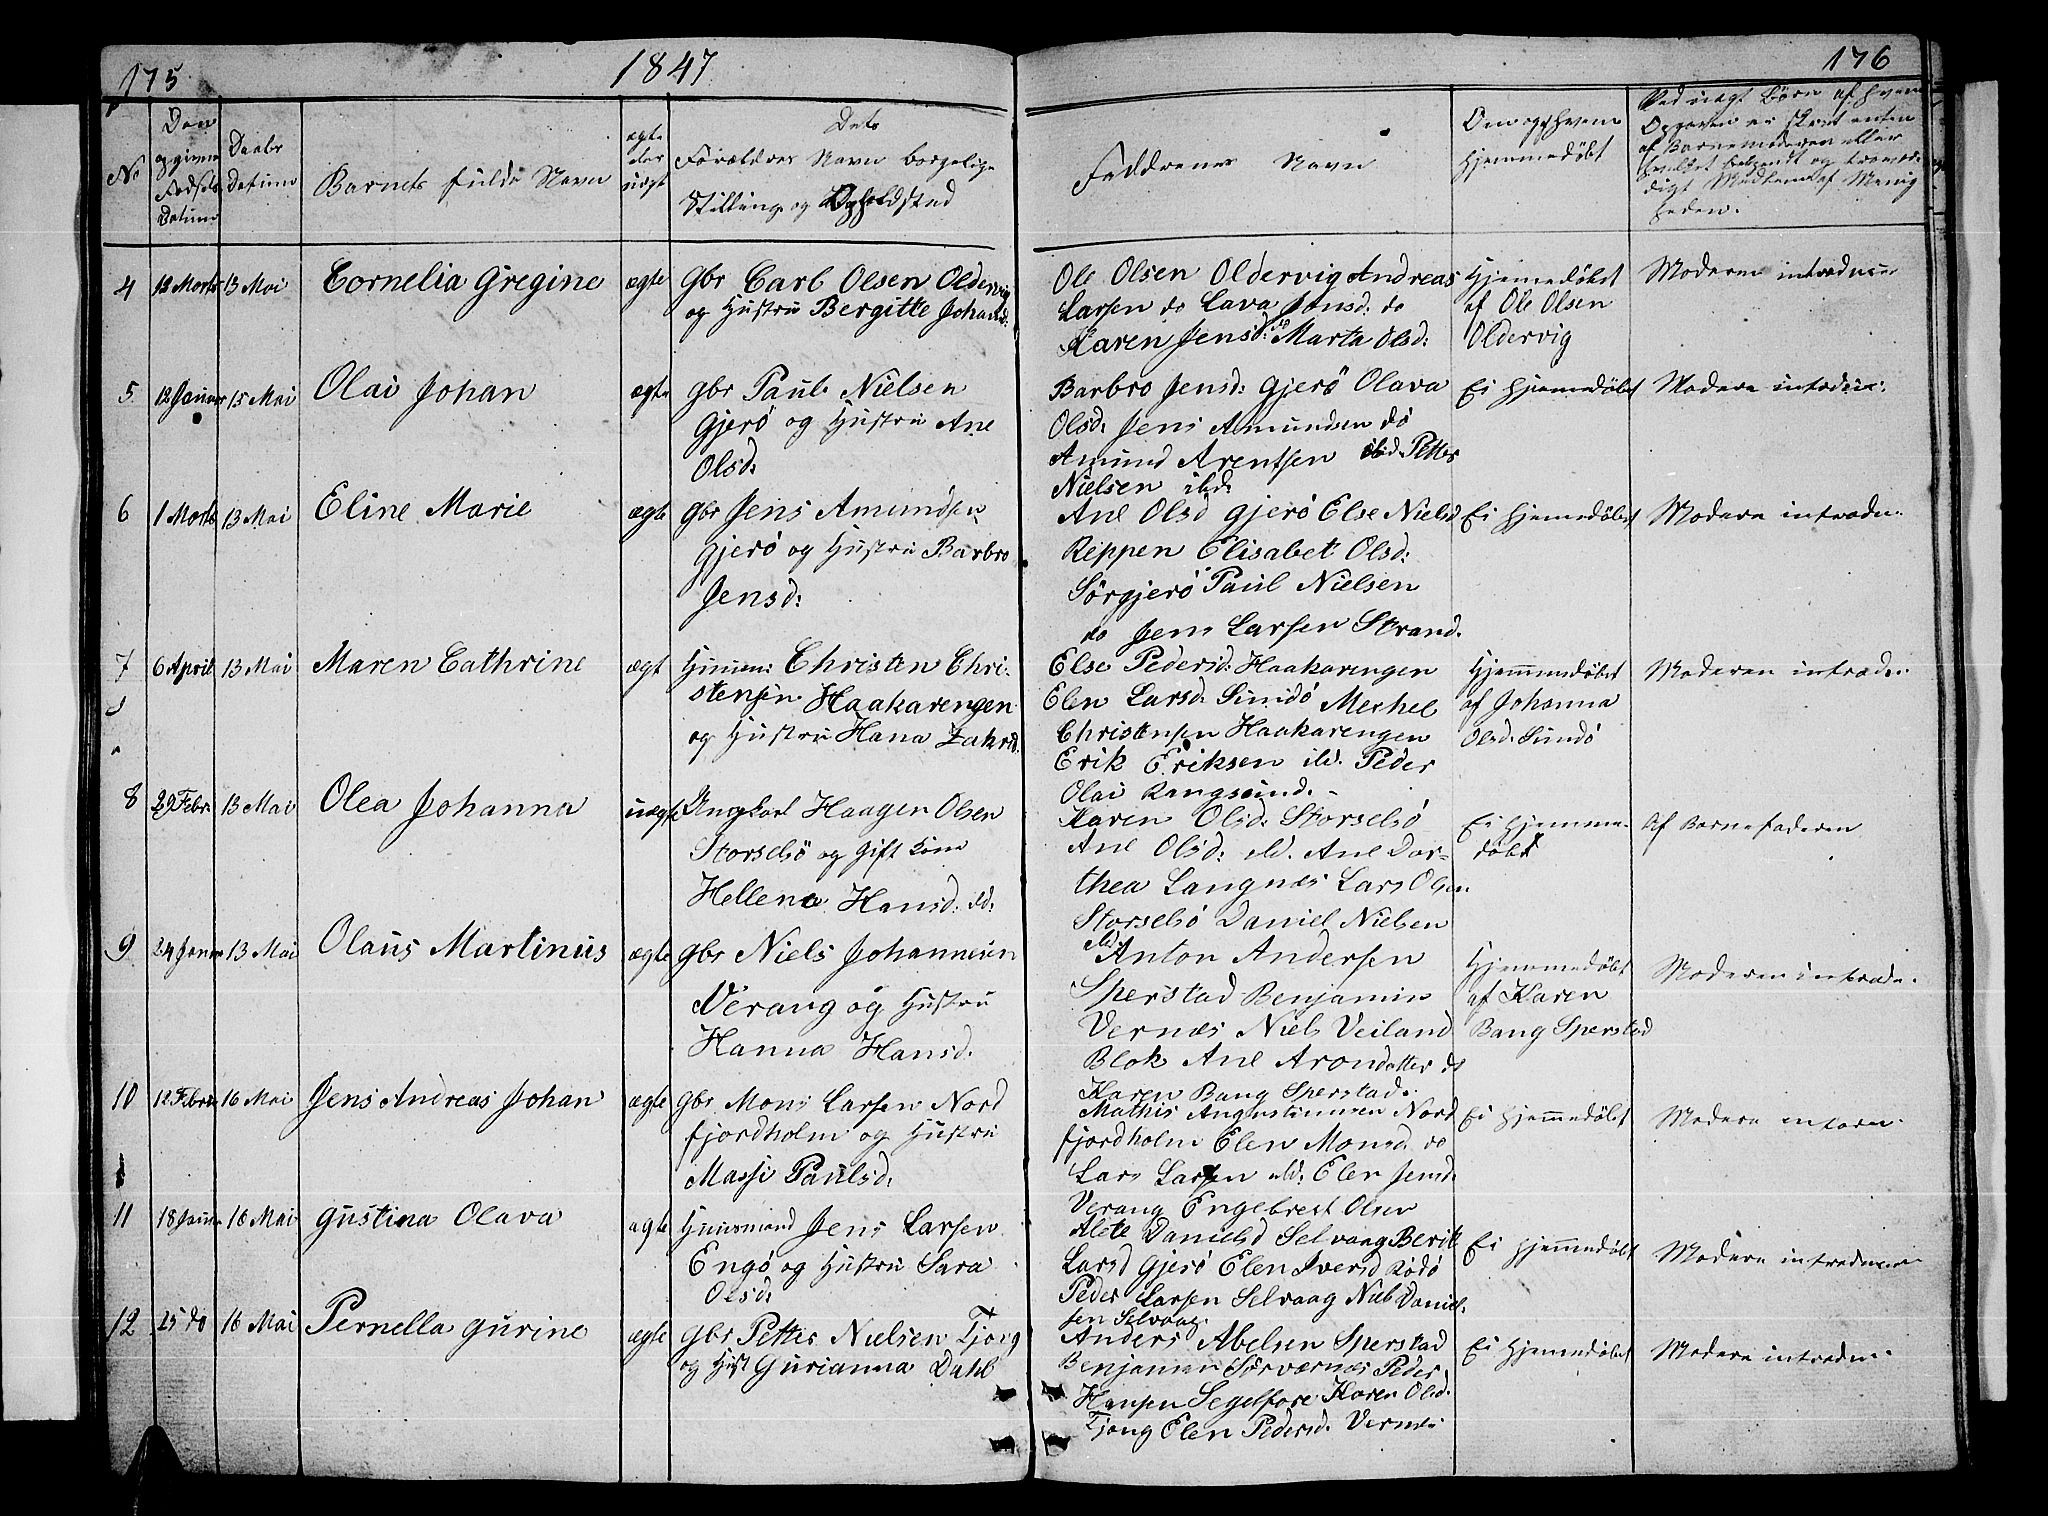 175
1847
176
No
Den opgivne Fødsels Datum
Daabs Datum
Barnets fulde Navn
ægte eller uægt
Dets
Forældres Navn borgelige
Stilling og Opholdsted
Faddrenes Navn
Om og af hvem
hjemmedøbt
Ved uægt Børn af hvem
Opgaven er skeet enten
af Barnemoderen eller
digt Medlem af Menig
heden.
4 12 Marts 13 Mai Cornelia Gregine ægte Gbr Carl Olsen Oldervig
og Hustru Bergitte Johansd:
Ole Olsen Oldervig Andreas
Larsen do Lava Jonsd: do
Karen Jensd: do Marta Olsd:
Hjemmedøbt
af Ole Olsen
Oldervig
Moderen introducer
5 12 Januar 15 Mai Olai Johan ægte gbr Paul Nielsen
Gjerö og Hustru Ane
Olsd:
Barbro Jensd: Gjerö Olava
Olsd: Jens Amundsen do
Amund Arentsen ibid. Petter
Nielsen ibid:
Ei hjemmedøbt
Modere introdu:
6 1 Marts 13 Mai Eline Marie ægte Gbr Jens Amundsen
Gjerö og Hustru Barbro
Jensd:
Ane Olsd Gjerö Else Nielsd
Reppen Elisabet Olsd:
Sörgjerö Paul Nielsen
do Jens Larsen Strand.
Ei hjemmedøbt
Modere introdu.
7 6 April 13 Mai Maren Cathrine ægt Huusm: Christen Chri-
stensen Haakarengen
og Hustru Hana Zakrid.
Else Pedersd: Haakarengen
Elen Larsd: Sundö Merhel
Christensen Haakarengen
Erik Eriksen ibd. Peder
Olai Rangsund.-
Hjemmedøbt
af Johanna
Olsd: Sundö
Moderen introdu.
8 29 Febr: 13 Mai Olea Johanna uægte Ungkarl Haagen Olsen
Storselsö og Gift Kone
Hellena Hansd: ibd:
Karen Olsd: Storselsö
Ane Olsd: ibd. Ane Dor-
thea Langnæs Lars Olsen
Storselsö Daniel Nielsen
ibd.
Ei Hjemme-
döbt
Af Barnefaderen
9 24 Janu 13 Mai Olaus Martinus ægte gbr Niels Johannesen
Værang og Hustru
Hanna Hansd.
Anton Andersen
Sperstad Benjamin
Vernæs Niels Veiland
Blok Ane Arondatter do
Karen Bang Sperstad.
Hjemmedøbt
af Karen
Bang Sperstad
Moderen introdu.
10 12 Febru 16 Mai Jens Andreas Johan ægte gbr. Mons Larsen Nord
fjordholm og Hustru
Massi Paulsd:
Mathis Augustinusen Nord
fjordholm Elen Monsd. do
Lars Larsen ibd: Elen Jensd.
Verang Engebrest Olsen
Ei Hjemmedøbt
Modere introdu.
11 18 Janu 16 Mai Gustina Olava ægte Huusmand Jens Larsen
Engö og Hustru Sara
Olsd:
Alete Danielsd Selvaag Berik
Larsd Gjerö Elen Iversd Rödö
Peder Larsen Selvaag Niels Daniel-
sen Selvaag.
Ei hjemmedøbt
Modere introducer
12 25 do 16 Mai Pernella Gurine ægte Gbr Petter Nielsen Tjong
og Hust Gurianna Dahl
Anders Abelsen Sperstad
Benjamin Sörvernæs Peder
Hansen Segelfore Karen Olsd.
Tjong Elen Pedersd: Vernæs
Ei Hjemmedøbt
Modere introdu.